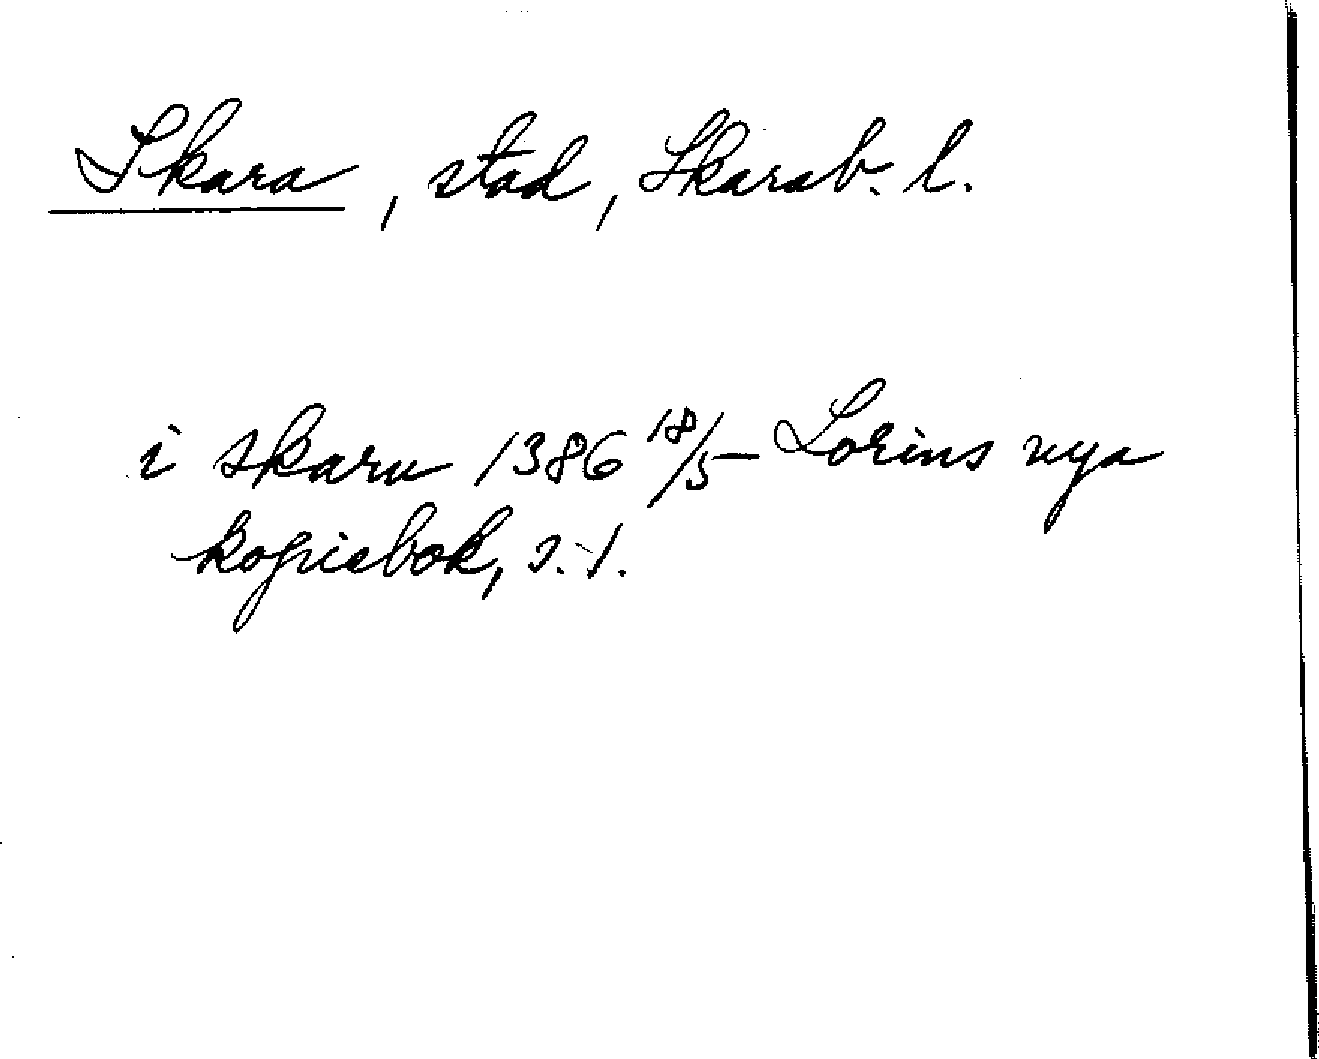 Skara, stad, Skarab. l.
i skaru 1386 18/5 – Lorins nya
kopiebok, s. 1.